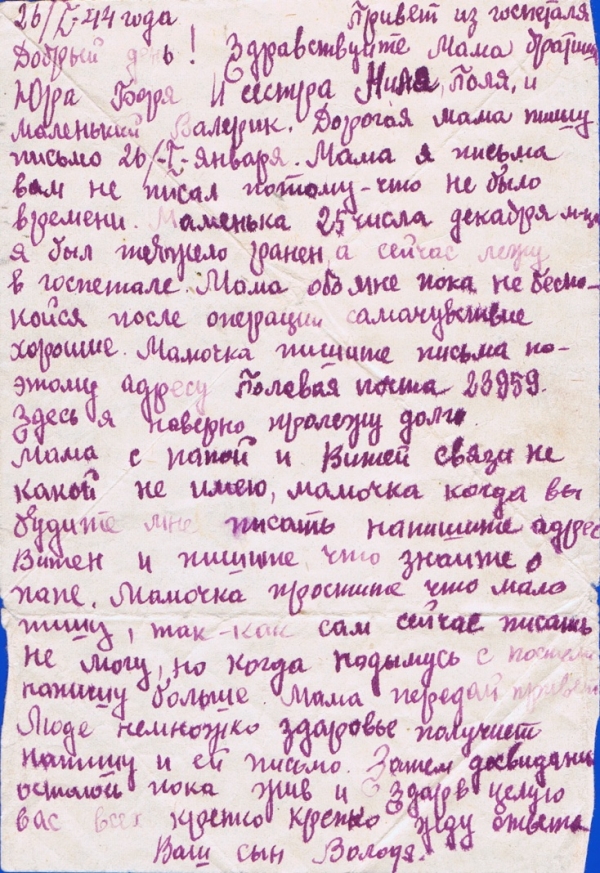 26/I-44 года Привет из госпеталя
Добрый день! Здравствуите Мама братишки
Юра Боря И сестура Нина, Поля, и
маленький Валерик. Дорогая мама пишу
письмо 26/-I-января. Мама я письма
вам не писал потому-что не было
времени. Маменька 25 числа декабря м-ца
я был тяжело ранен, а сейчас лежу
в госпетале. Мама обо мне пока не беспо-
койся после операции самачувствие
хорошие. Мамочка пишите письма по-
этому адресу Полевая почта 23959.
Здесь я наверно пролежу долго
Мама с папой и Витей связи не
какой не имею, мамочка когда вы
будите мне писать напишите адрес
Витен и пишите что знаите о
папе. Мамочка простите что мало
пишу, так-как сам сейчас писать
не могу, но когда падымусь с постели
напишу больше Мама передай привет
Люде немножко здаровье получшет
напишу и ей письмо. Затем досвидания
остаюй пока жив и здаров целую
вас всех крепко крепко жду ответа
Ваш сын Володя.